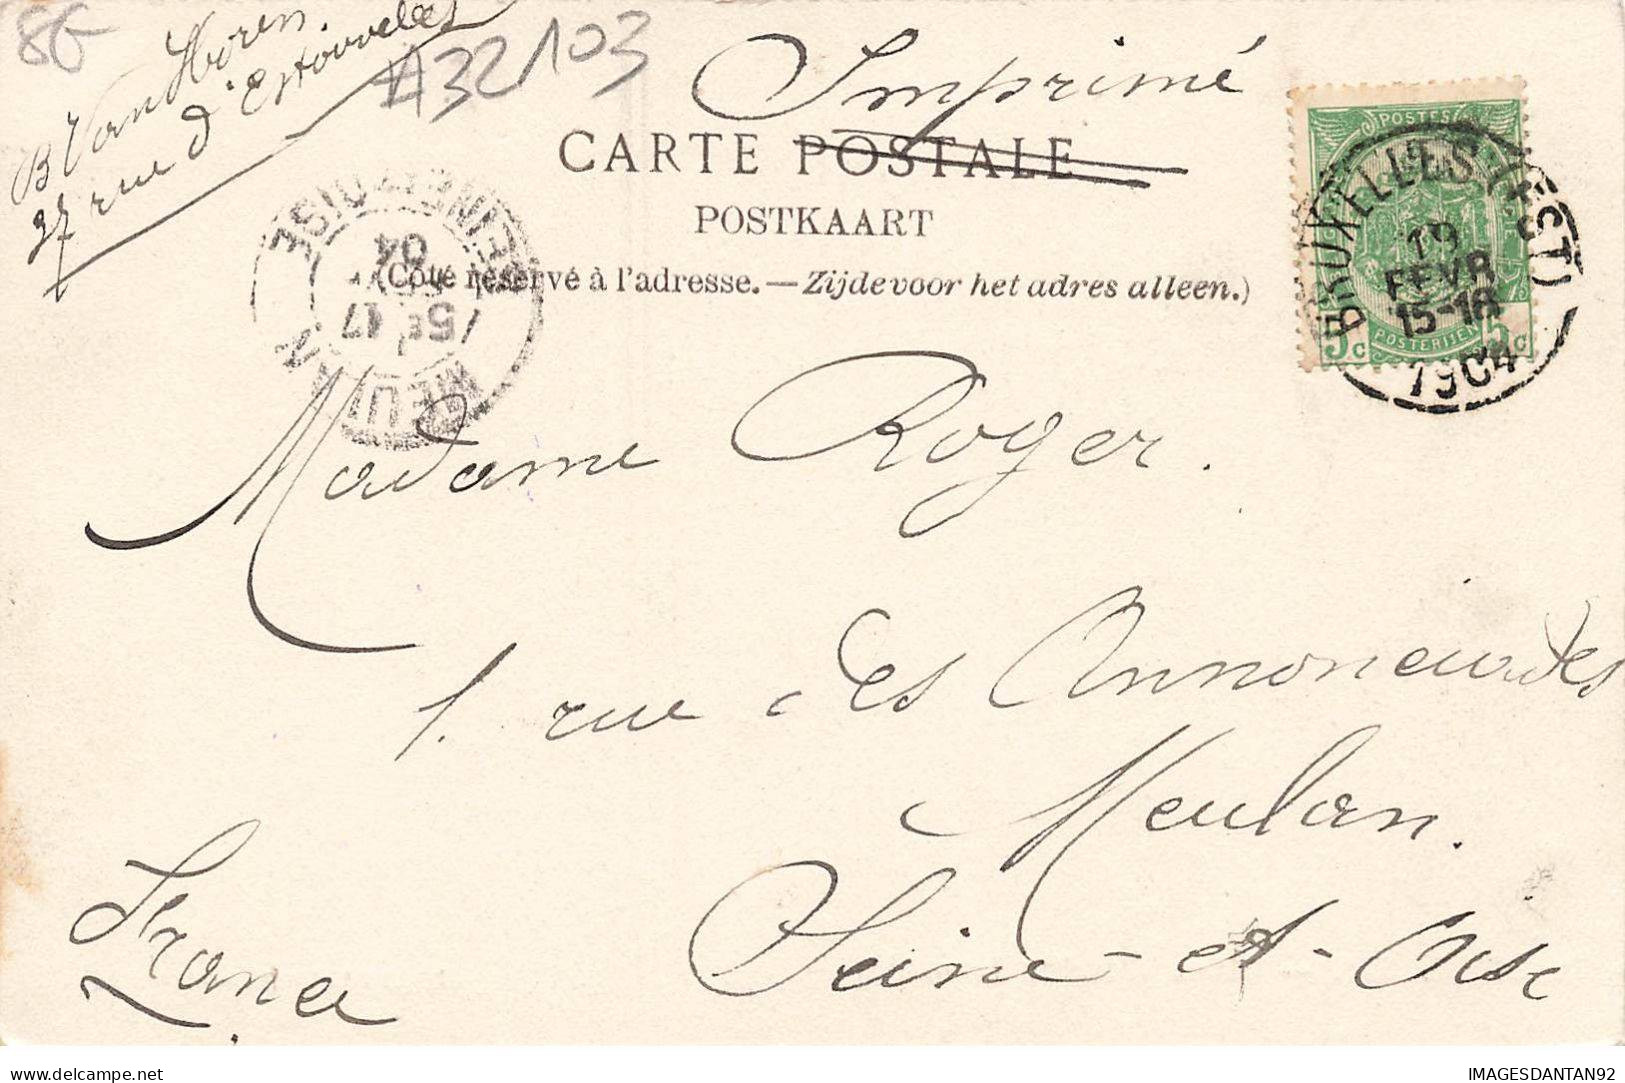 8G
#32103
B Van Horen.
27 rue d'Estouvelles
Imprimé
CARTE POSTALE
POSTKAART
(Côté réservé à l'adresse.—Zijde voor het adres alleen.)
POSTES
5c POSTERIJEN 5c
BRUXELLES (EST)
19
FEVR
15-16
1904
MEULAN
15E 17
04
Madame Roger.
1. rue des Annonciades
Meulan.
Seine-et-Oise
France
IMAGESDANTAN92